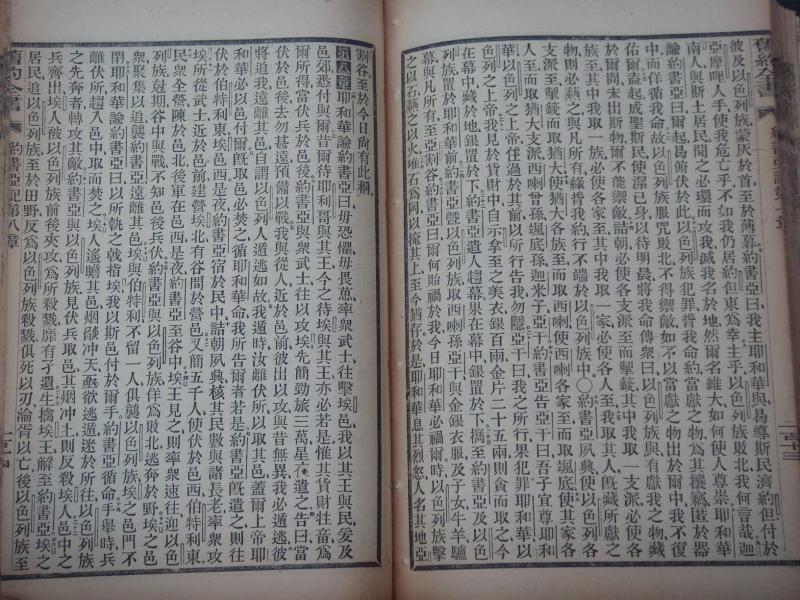 舊約全書 約書亞記第七章
彼及以色列族蒙灰於首至於薄暮約書亞曰我主耶和華與曷導斯民濟約但付於
亞摩哩人手使我危亡乎不如我仍居約但東爲幸主乎以色列族敗北我何言哉迦
南人及斯土居民聞之必環而攻我滅我名於地然爾名維大如何使人尊崇耶和華
諭約書亞曰爾起曷俯伏於此以色列族犯罪背我命約當獻之物爲其攘竊匿於器
中而佯循我命故以色列族服咒敗北不得禦敵如不以當獻之物出於爾中我不復
佑爾蓋起成聖斯民使潔己身以待明晨將我命傳衆曰以色列族與有獻我之物藏
於爾間未出斯物爾不能禦敵詰朝必使各支派至而掣籤其中我取一支派必使各
族至其中我取一族必使各家至其中我取一家必使各人至我取其人旣藏所獻之
物則必爇之與凡所有緣背我約行不端於以色列族中〇約書亞夙興使以色列
支派至而掣籤取猶大使猶大各族至而取西喇使西喇各家至而取颯底使其家各
人至而取猶大支派西喇曾孫颯底孫迦米子亞干約書亞告亞干曰吾子宜尊耶和
華以色列之上帝任過於其前以所行告我勿隱亞干曰我之所行果犯罪耶和華以
色列之上帝我見於貨財中自示拿至之美衣銀百兩金片二十五兩則貪而取之今
在幕中藏於地銀置於下約書亞遣人趨幕果在幕中銀置於下攜至約書亞及以色
列族前置耶和華前約書亞暨以色列族取西喇孫亞干與金銀衣服及子女牛羊驢
幕與凡所有至亞割谷約書亞曰爾何貽禍於我今日耶和華必禍爾時以色列族擊
之以石爇之以火堆石爲岡以掩其上至今猶存於是耶和華息其烈怒人名其地亞
割谷至於今日尚有此稱
第八章耶和華諭約書亞曰毋恐懼毋畏葸率衆武士往擊埃邑我以其王與民爰及
邑郊悉付與爾昔爾待耶利哥與其王今之待埃與其王亦必若是惟其貨財牲畜爲
爾所得當伏兵於邑後約書亞與衆武士往以攻埃先簡勁旅三萬星夜遣之告曰當
伏於邑後去勿甚遠預備以戰我與從人近於邑前彼出以攻與昔無異我必遁逃彼
將追我遠離其邑自謂以色列人遁逃如故我遁時汝離伏所以取其邑蓋爾上帝耶
和華必以邑付爾旣取邑必焚之循耶和華命我所告爾者若是約書亞旣遣之則往
伏於伯特利東埃邑西是夜約書亞宿於民中詰朝夙興核其民數與諸長老率衆攻
埃所從武士近於邑前建營埃北有谷間於營邑又簡五千人使伏於邑西伯特利東
民衆全營陳於邑北後軍在邑西是夜約書亞至谷中埃王見之則率衆速往迎以色
列族剋期谷中與戰不知邑後兵伏約書亞與以色列族佯爲敗北逃奔於野埃之邑
衆聚集以追襲約書亞遠離其邑埃與伯特利不留一人俱襲以色列族埃之邑門不
閉耶和華諭約書亞曰以所執之戟指埃我以斯邑付於爾手約書亞循命手舉時兵
離伏所趨入邑中取而焚之埃人遙瞻其邑烟騰冲天亟欲逃遁迷於所往以色列族
之先奔者轉攻其敵約書亞與以色列族見伏兵取邑其烟冲上則反殺埃人邑中之
兵齊出埃人被以色列族前後夾攻爲所殺戮靡有孑遺生擒埃王解至約書亞埃之
居民追以色列族至於田野反爲以色列族殺戮俱死以刃淪胥以亡後以色列族至
舊約全書 約書亞記第八章